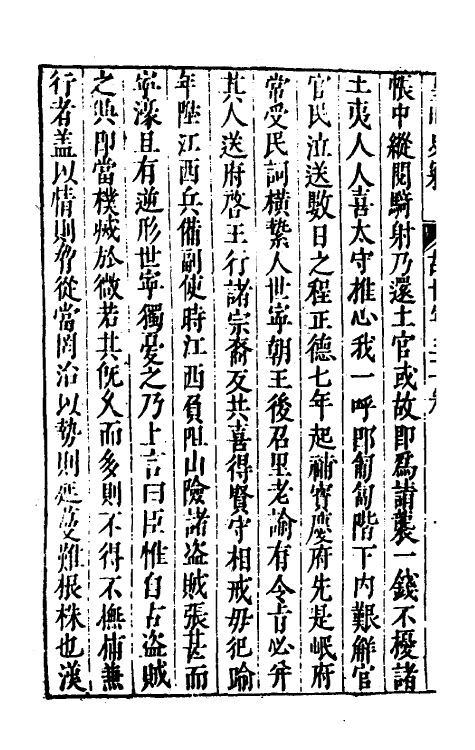 帳中縱閱騎射乃還土官或故即爲請襲一錢不擾諸
土夷人人喜太守推心我一呼即匍匐階下内艱解官
官民泣送數日之程正德七年起補寶慶府先是岷府
常受民詞橫縶人世寧朝王後召里老諭有令㫖必并
其人送府啓王行諸宗裔反共喜得賢守相戒毋犯踰
年陞江西兵備副使時江西負阻山險諸盗賊張甚而
寧濠且有逆形世寧獨憂之乃上言曰臣惟自古盗賊
之興即當撲滅於微若其旣久而多則不得不撫捕兼
行者盖以情則脅從當罔治以勢則延蔓難根株也漢